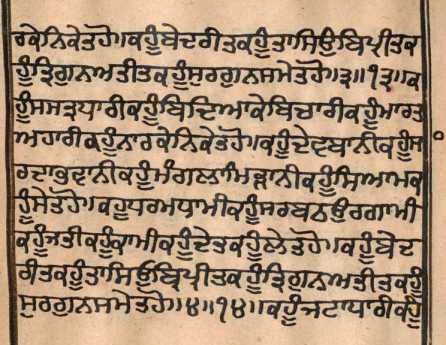 ਰਕੇਨਿਕੇਤਹੋ॥ਕਹੂੰਬੇਦਰੀਤਕਹੂੰਤਾਸਿਉਬਿਪ੍ਰੀਤਕ
ਹੂੰਤ੍ਰਿਗੁਨਅਤੀਤਕਹੂੰਸੁਰਗੁਨਸਮੇਤਹੋ॥੩॥੧੩॥ਕ
ਹੂੰਸਸਤ੍ਰਧਾਰੀਕਹੂੰਬਿਦਿਆਕੇਬਿਚਾਰੀਕਹੂੰਮਾਰਤ
ਅਹਾਰੀਕਹੂੰਨਾਰਕੇਨਿਕੇਤਹੋ॥ਕਹੂੰਦੇਵਬਾਨੀਕਹੂੰਸਾ
ਰਦਾਭਵਾਨੀਕਹੂੰਮੰਗਲਾਮਿੜਾਨੀਕਹੂੰਸਿਆਮਕ
ਹੂੰਸੇਤਹੋ॥ਕਹੂਧਰਮਧਾਮੀਕਹੂੰਸਰਬਠਉਰਗਾਮੀ
ਕਹੂੰਜਤੀਕਹੂੰਕਾਮੀਕਹੂੰਦੇਤਕਹੂੰਲੇਤਹੋ॥ਕਹੂੰਬੇਦ
ਰੀਤਕਹੂੰਤਾਸਿਉਬਿਪ੍ਰੀਤਕਹੂੰਤ੍ਰਿਗੁਨਅਤੀਤਕਹੂੰ
ਸੁਰਗੁਨਸਮੇਤਹੋ॥੪॥੧੪॥ਕਹੂੰਜਟਾਧਾਰੀਕਹੂੰ